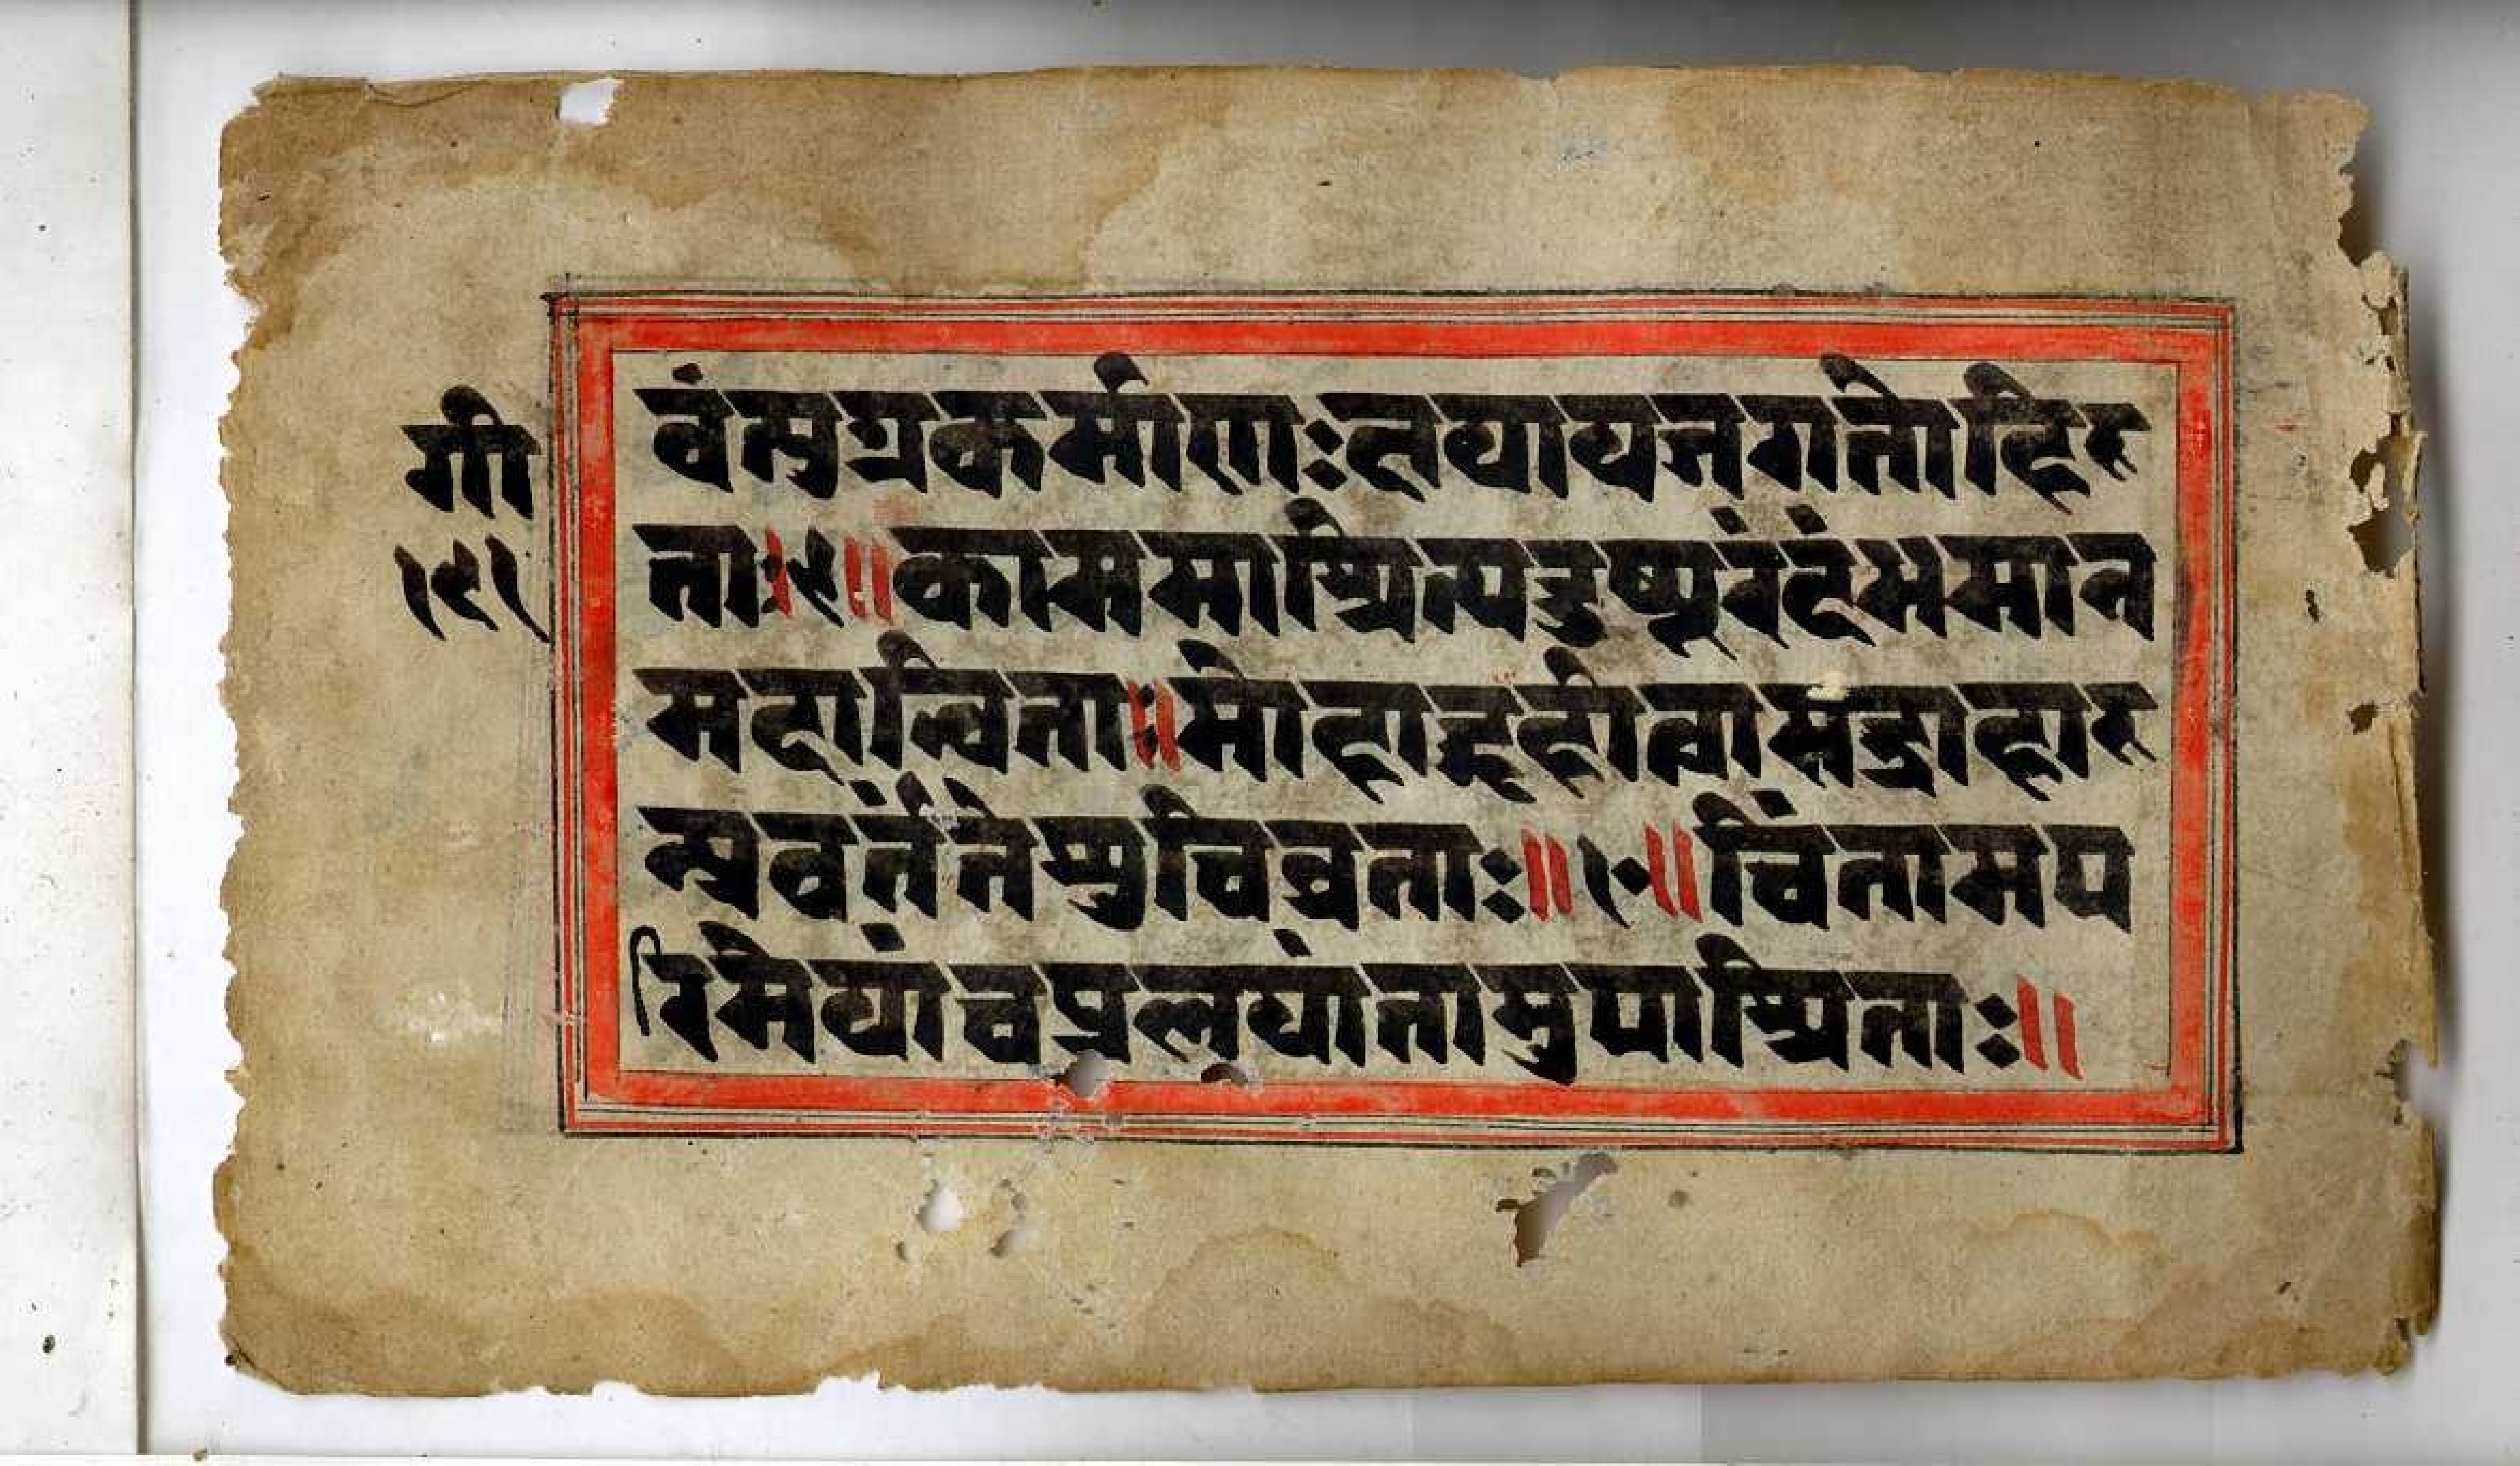 गी
वंत्युग्रकर्माणःक्षयायजगतोहि
१९१
ताः।९॥काममाश्रित्यदुष्पूरंदंभमान
मदान्विताः॥मोहाद्गृहीत्वासद्ग्राहा
न्प्रवर्तंतेशुचिव्रताः॥१०॥चिंतामप
रिमेयांचप्रलयांतामुपाश्रिताः॥